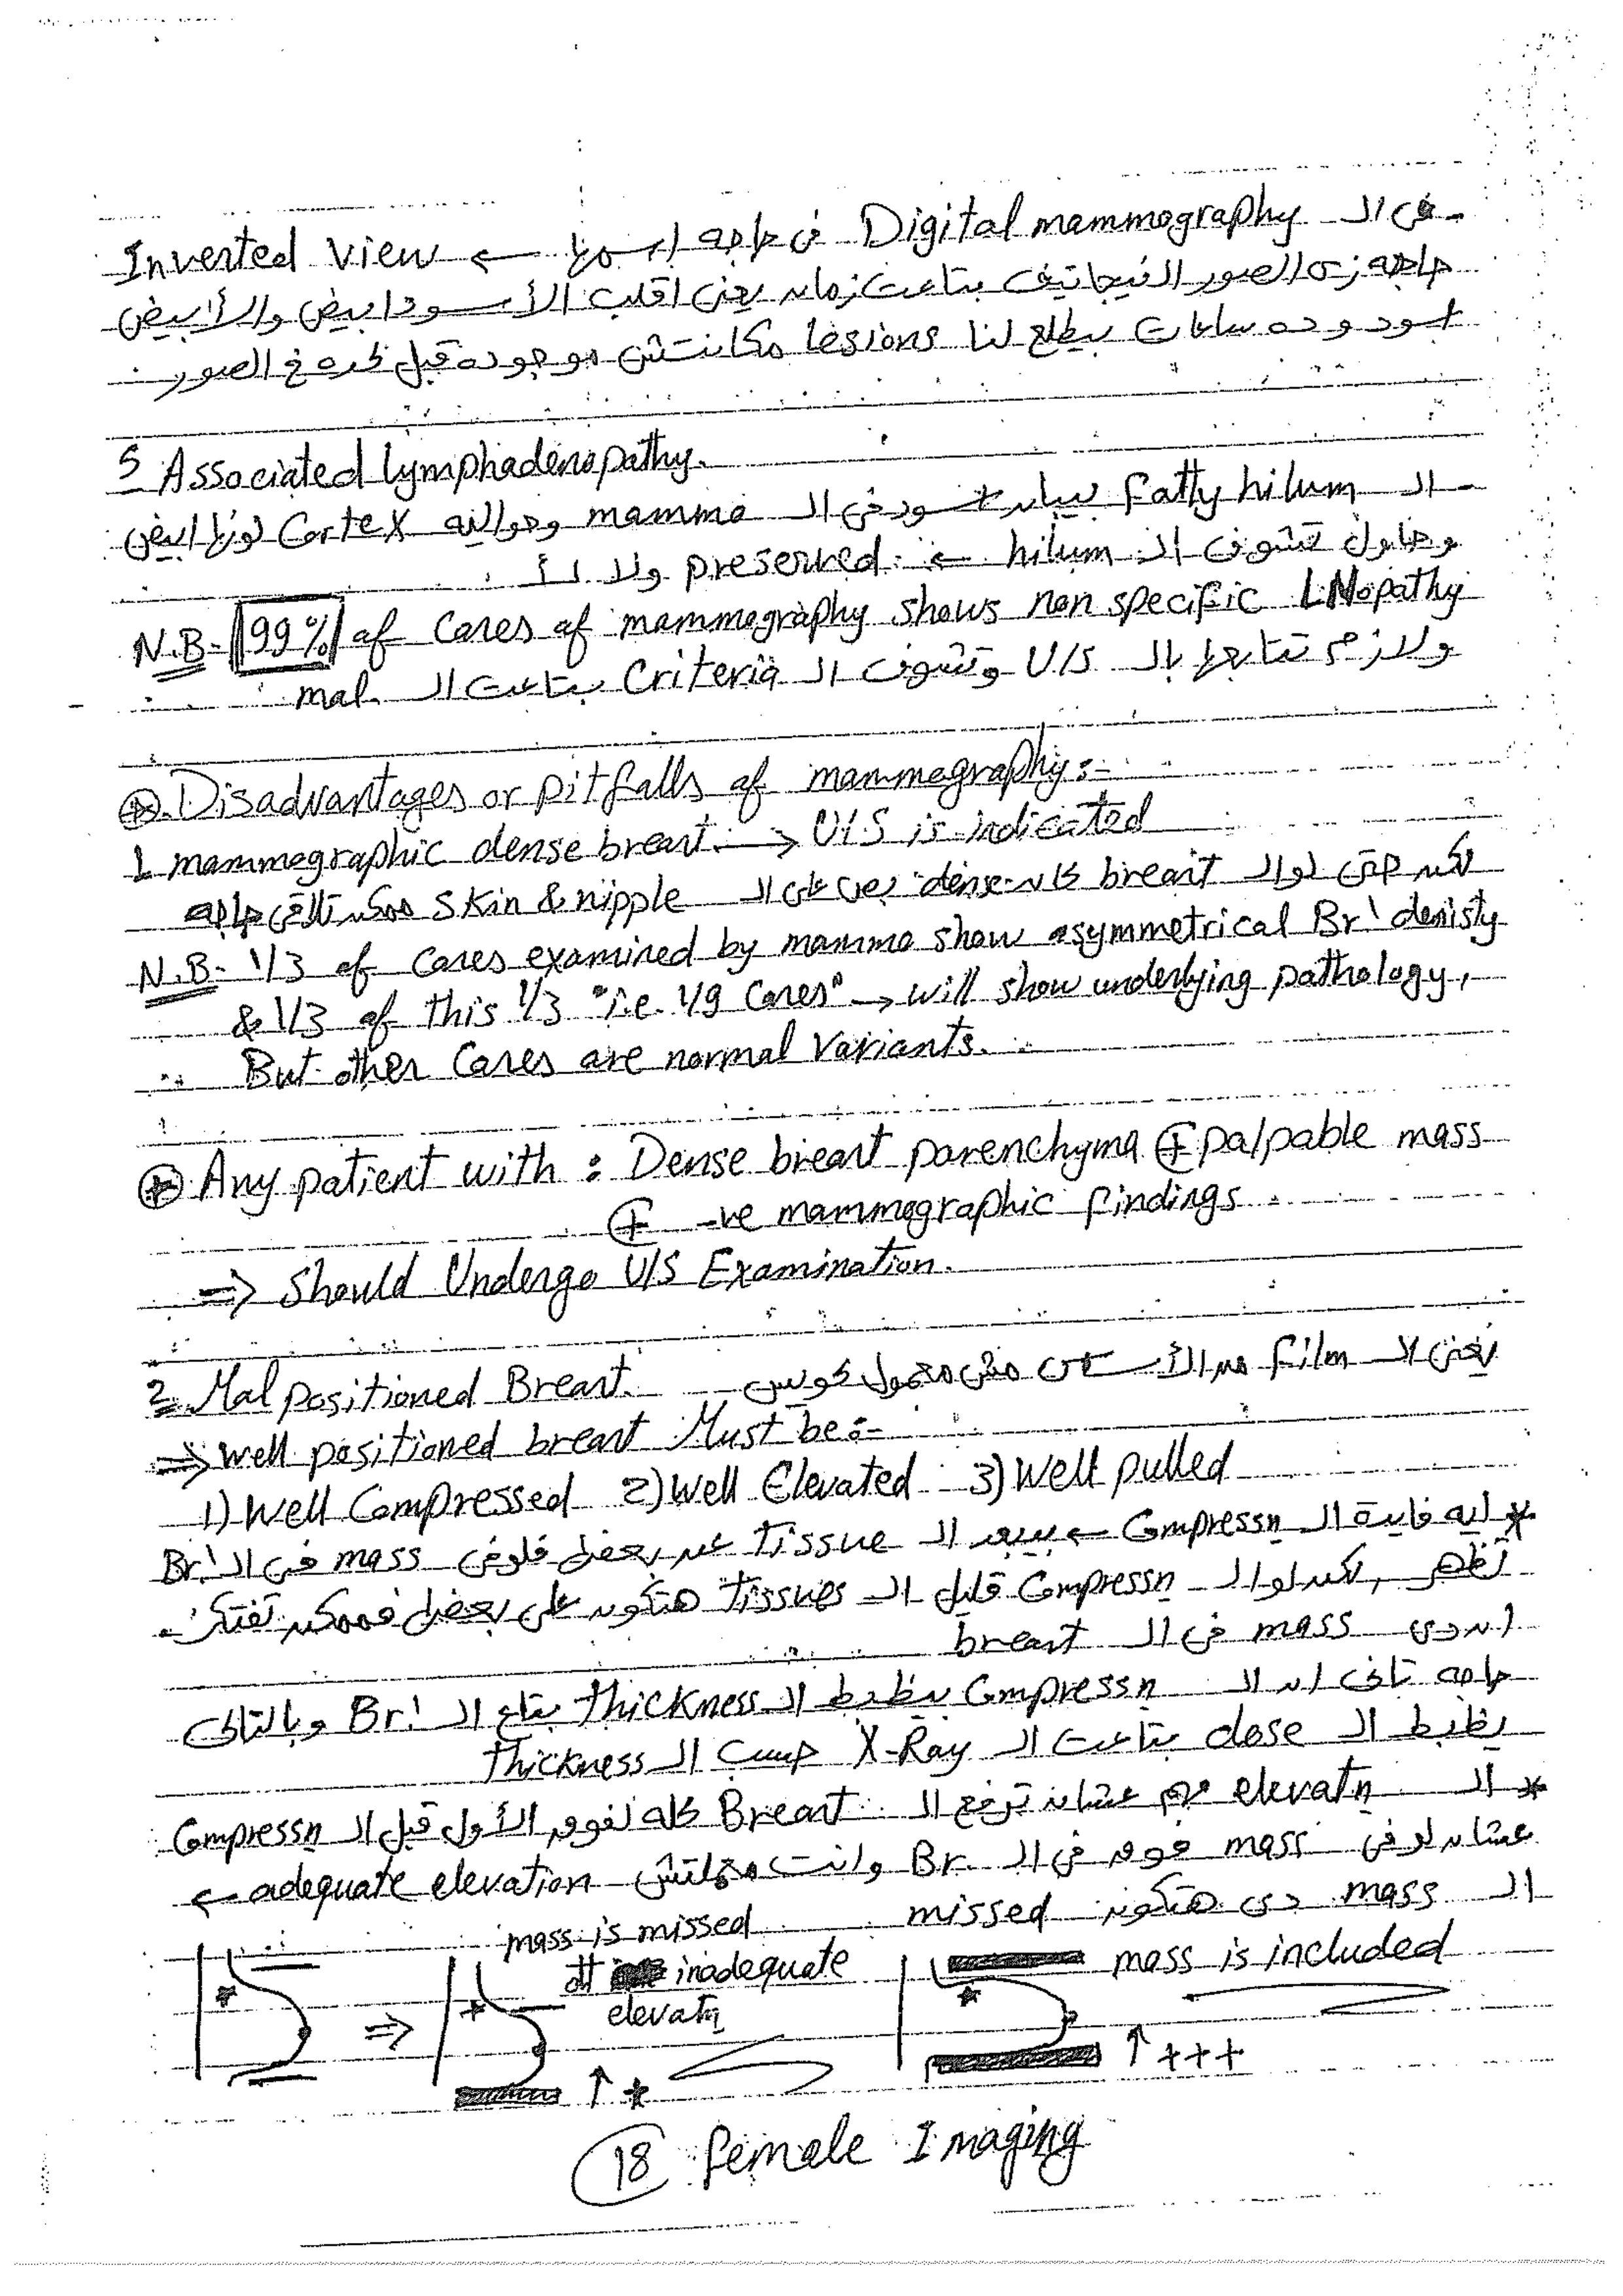 - فى الـ Digital mammography فى حاجه اسمها ← Inverted View
حاجه زى الصور النيجاتيف بتاعت زمان يعنى اقلب الأسود ابيض والأبيض
اسود وده ساعات بيطلع لنا lesions مكانتش موجوده قبل كده فى الصور
5 Associated lymphadenopathy.
- الـ Fatty hilum بيبان اسود فى الـ mammo وحواليه Cortex لونها ابيض
وحاول تشوف الـ hilum ← preserved ولا لأ
N.B- 99% of Cases of mammography shows non specific LNopathy
ولازم تتابعها بالـ U/S وتشوف الـ Criteria بتاعت الـ mal.
⊛ Disadvantages or pitfalls of mammography:-
1 mammographic dense breast → U/S is indicated
لكن حتى لو الـ breast كان dense بص على الـ Skin & nipple ممكن تلاقى حاجه
N.B- 1/3 of Cases examined by mammo show asymmetrical Br! denisty
& 1/3 of this 1/3 "i.e. 1/9 Cases" → will show underlying pathology,
But other Cases are normal Variants.
⊛ Any patient with : Dense breast parenchyma ⊕ palpable mass
⊕ -ve mammographic findings
⇒ Should Undergo U/S Examination.
2 Mal positioned Breast. يعنى الـ Film من الأساس مش معمول كويس
⇒ Well positioned breast Must be:-
1) Well Compressed 2) Well Elevated 3) Well pulled
* ليه فايدة الـ Compressn ← بيبعد الـ tissue عن بعض فلو فى mass فى الـ Br!
تظهر, لكن لو الـ Compressn قليل الـ tissues هتكون على بعض فممكن تفتكر
ان دى mass فى الـ breast
حاجه تانى ان الـ Compressn بيظبط الـ thickness بتاع الـ Br! وبالتالى
يظبط الـ dose بتاعت الـ X-Ray حسب الـ thickness
* الـ elevatn مهم عشان ترفع الـ Breast كله لفوق الأول قبل الـ Compressn
عشان لو فى mass فوق فى الـ Br. وانت معملتش adequate elevation ←
الـ mass دى هتكون missed
mass is missed
inadequate
elevatn
mass is included
⇒
↑ *
↑ +++
18 Female Imaging